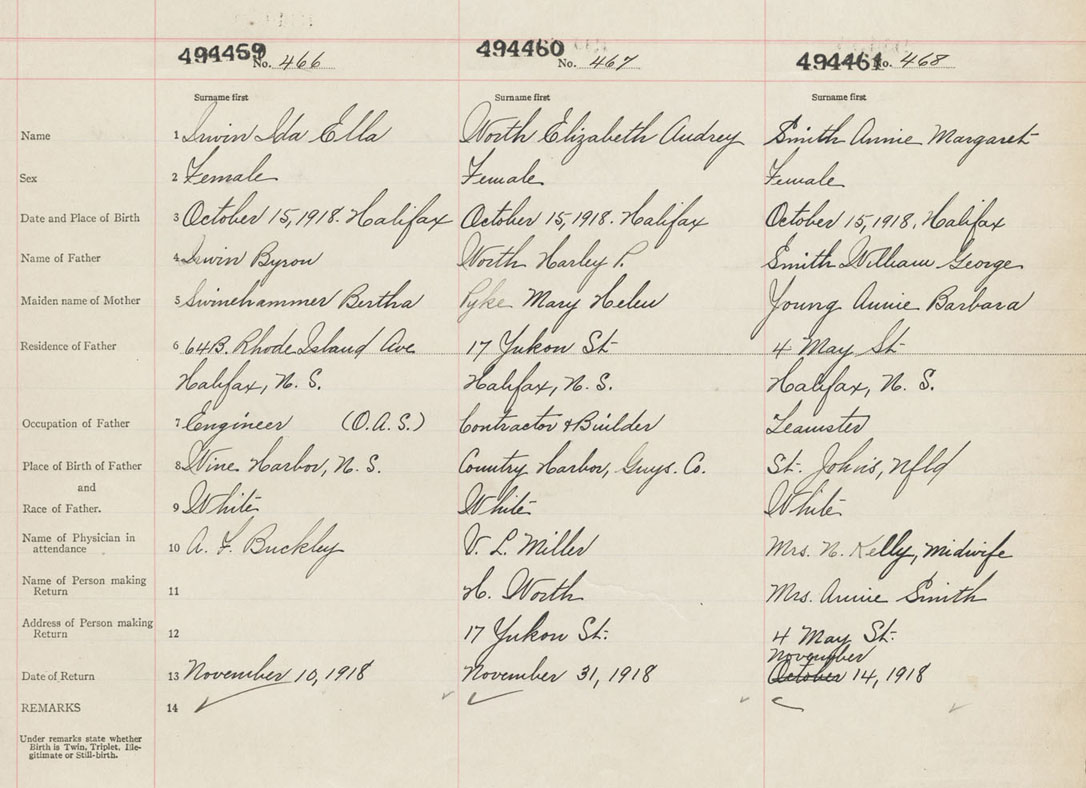 494459 No. 466 494460 No. 467 494461 No. 468
Surname first Surname first Surname first
Name 1 Irwin Ida Ella Worth Elizabeth Audrey Smith Annie Margaret
Sex 2 Female Female Female
Date and Place of Birth 3 October 15, 1918. Halifax October 15, 1918. Halifax October 15, 1918, Halifax
Name of Father 4 Irwin Byron Worth Harley P. Smith William George
Maiden name of Mother 5 Swinehammer Bertha Pyke Mary Helen Young Annie Barbara
Residence of Father 6 64B. Rhode Island Ave 17 Yukon St. 4 May St.
Halifax, N. S. Halifax, N. S. Halifax, N. S.
Occupation of Father 7 Engineer (O.A.S.) Contractor & Builder Teamster
Place of Birth of Father 8 Wine Harbor, N. S. Country Harbor, Guys. Co. St. John's, Nfld
and
Race of Father. 9 White White White
Name of Physician in
attendance 10 A. F. Buckley V. L. Miller Mrs. N. Kelly, Midwife
Name of Person making
Return 11 H. Worth Mrs. Annie Smith
Address of Person making
Return 12 17 Yukon St. 4 May St.
November
Date of Return 13 November 10, 1918 November 31, 1918 October 14, 1918
REMARKS 14
Under remarks state whether
Birth is Twin, Triplet, Ille-
gitimate or Still-birth.